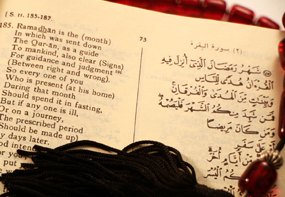 [ S II. 185-187.
73
(٢) سورة البقرة
185. Ramadhān is the (month)
In which was sent down
The Qur-ān, as a guide
To mankind, also clear (Signs)
For guidance and judgment
(Between right and wrong).
So every one of you
Who is present (at his home)
During that month
Should spend it in fasting,
But if any one is ill,
Or on a journey,
The prescribed period
(Should be made up)
By days later.
شهر رمضان الذى أنزل فيه
القرءان هدى للناس
وبينت من الهدى والفرقان
فمن شهد منكم الشهر فليصمه
ومن كان مريضا
أو على سفر
فعدة من أيام أخر